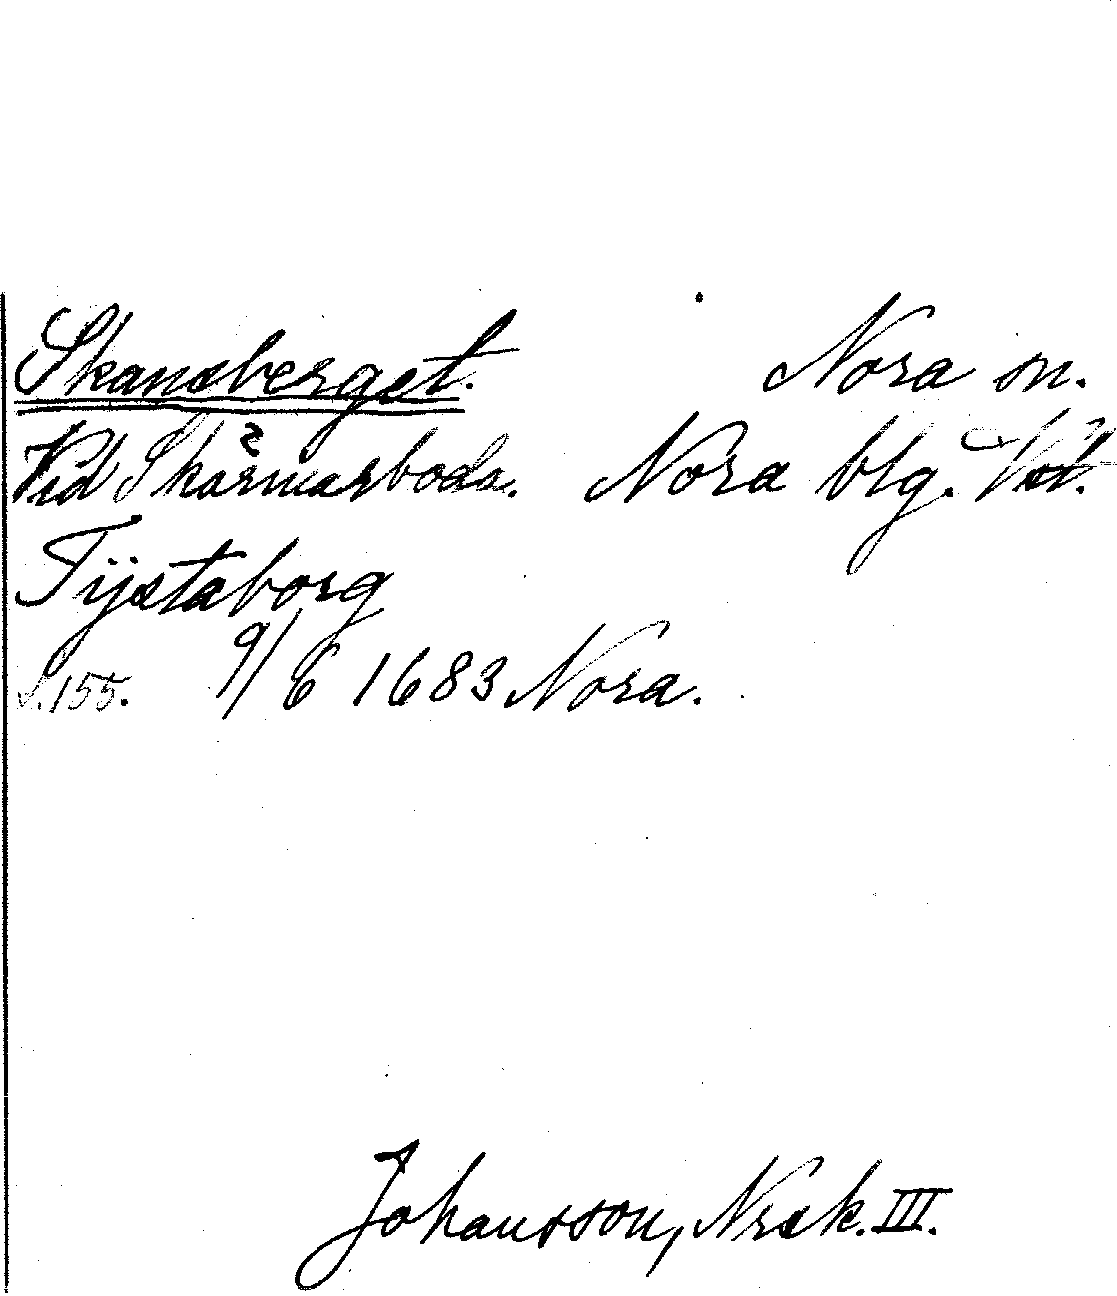 Skansberget. Nora sn.
Vid Skärmarboda. Nora blg. Vstl.
Tijstaborg
S. 155. 9/6 1683 Nora.
Johansson, Nrsk. III.